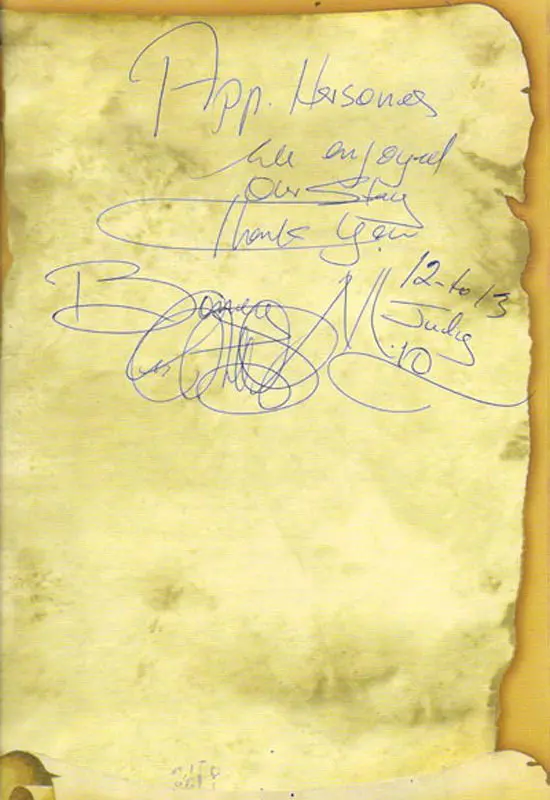 App. Hersones
We enjoyed
Our Stay
Thank You
12-to 13
July
10